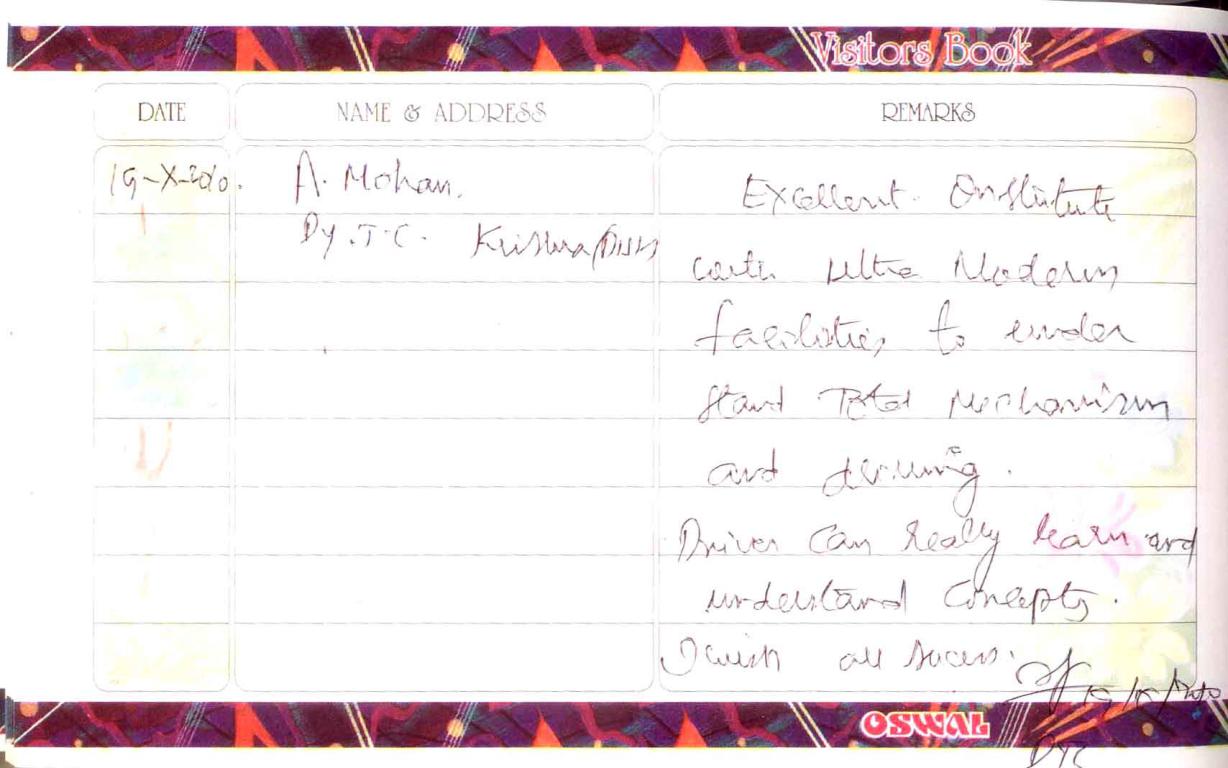 Visitors Book
DATE
NAME & ADDRESS
REMARKS
19-X-2010.
A. Mohan.
Dy.T.C. Krishna (Dist)
Excellent Institute
with Ultra Modern
facilities to under
stand Total Mechanism
and driving.
Driver can really learn and
understand concepts.
I wish all success.
OSWAL
DTC